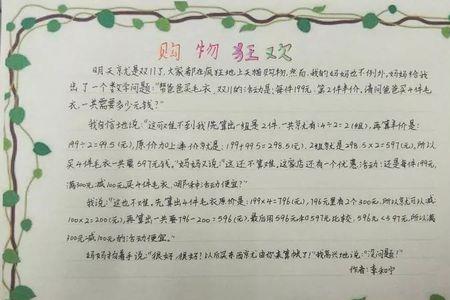 购物狂欢
明天就是双11了,大家都在疯狂地上天猫购物,然而,我的妈妈也不例外,妈妈给我
出了一个数学问题:“帮爸爸买毛衣,双11的活动是:每件199元,第2件半价。请问爸爸买4件毛
衣,一共需要多少元钱?”
我自信地说:“这可难不到我!先算出一组是2件,一共就有:4÷2=2(组),再算半价是:
199÷2=99.5(元),原价加上半价就是:199+99.5=298.5(元),2组就是298.5×2=597(元),所以
买4件毛衣一共要597元钱。”妈妈又说:“这还不算难,这家店还有一个优惠活动:还是每件199元,
满300元,减100元,买4件毛衣,哪种活动便宜?”
我说:“这也不难,先算出4件毛衣原价是:199×4=796(元),796元里有2个300元,所以就可以减:
100×2=200(元),再算出一共要796-200=596(元),最后用596元和597元比较,596元<597元,所以满
300元减100元的活动便宜。”
妈妈拍着手说:“很好,很好!以后买东西就由你来算帐了!”我高兴地说:“没问题!”
作者:李知宁